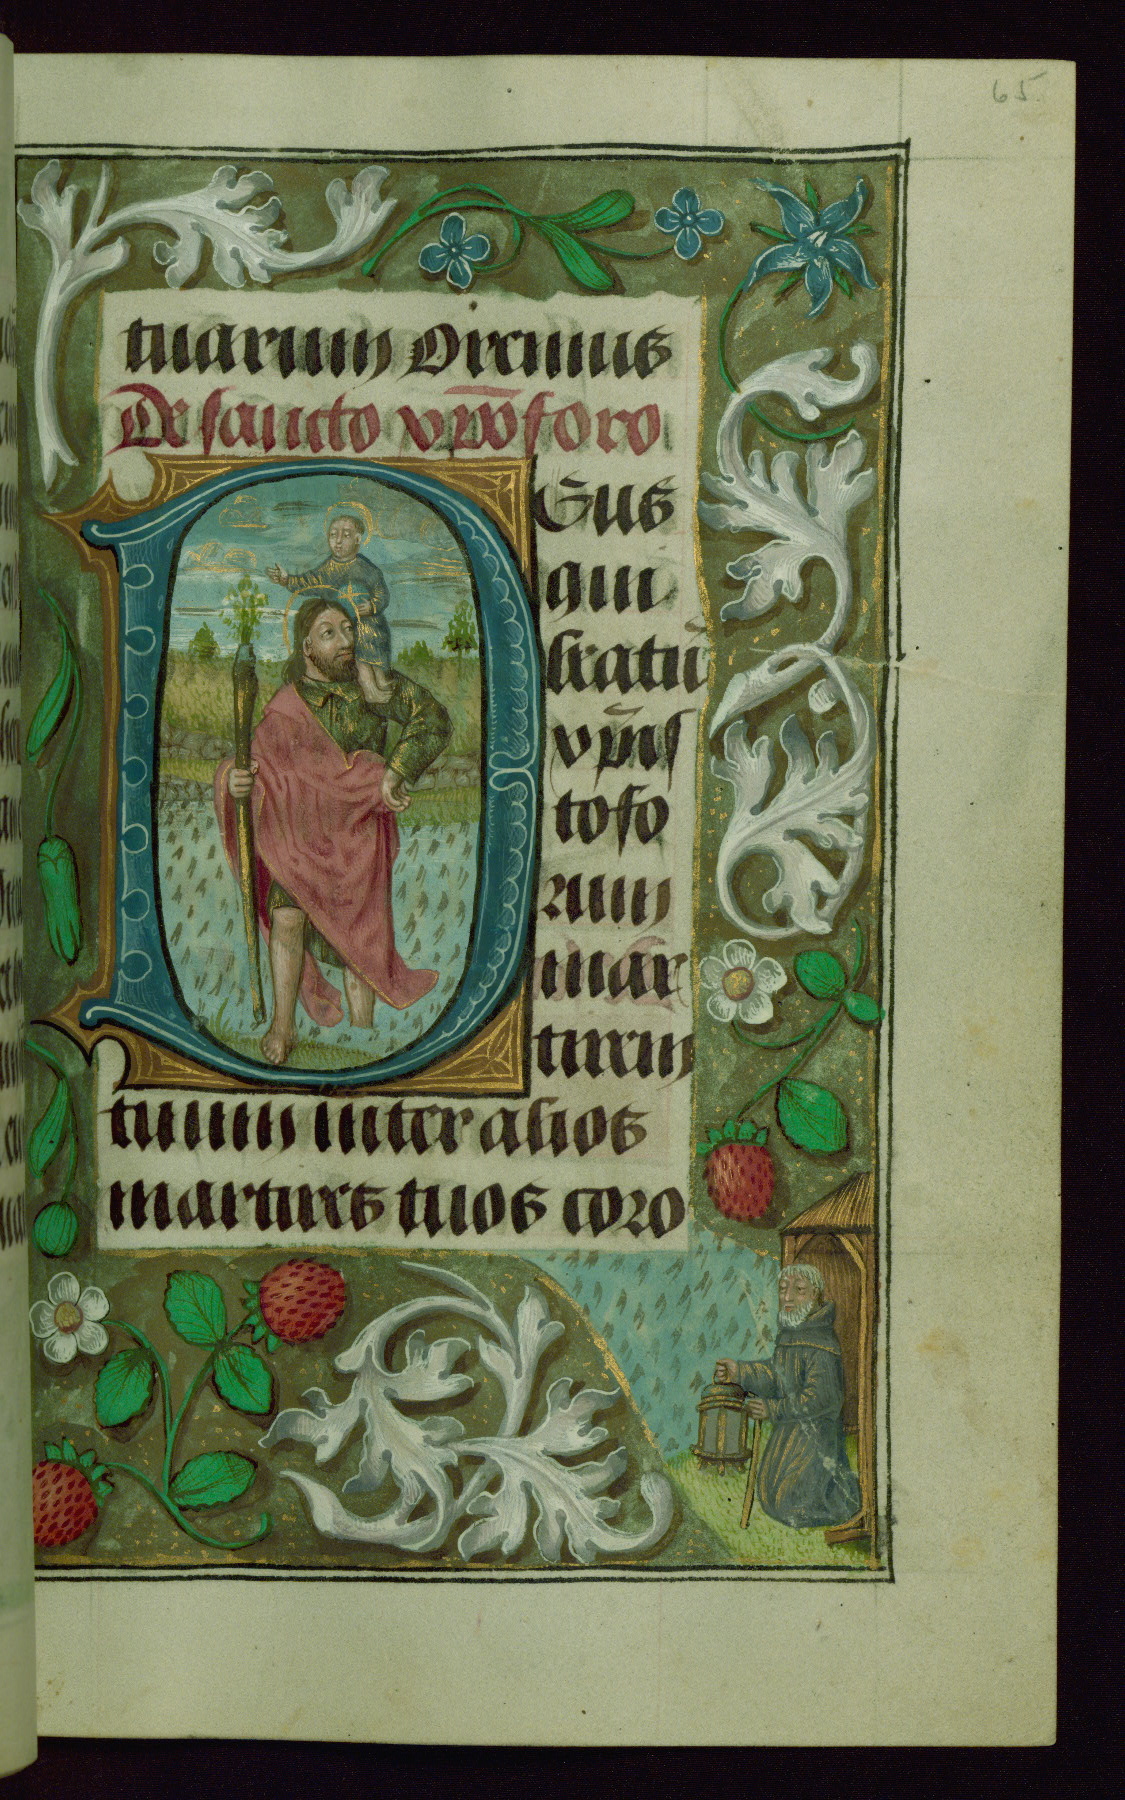 65.
tuarum Oremus
De sancto xp̅oforo
D
eus
qui
beatū
xp̄ıs
tofo
rum
mar
tirem
tuum inter alios
martires tuos coro